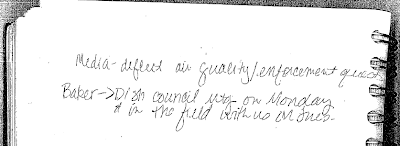 Media - deflect air quality/enforcement quest
Baker -> Dish council mtg on Monday
& in the field with us on Tues.